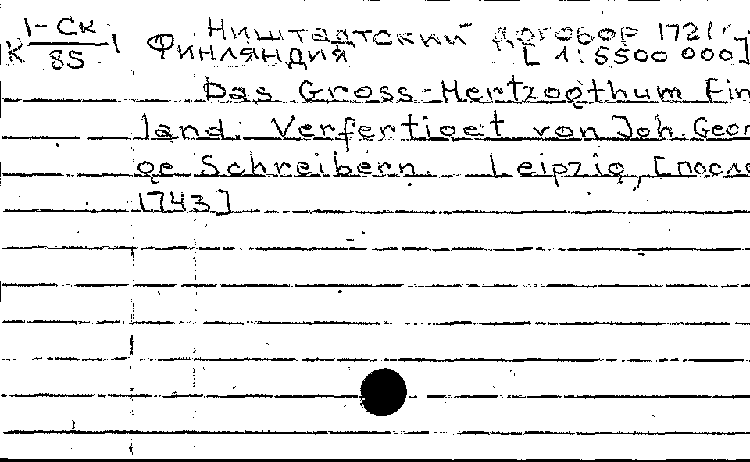 К 1-Ск/85 1 Ништадтский договор 1721 г.
Финляндия [1:5500 000]
Das Gross-Hertzogthum Fin
land. Verfertiget von Joh. Geor
ge Schreibern. Leipzig, [после
1743]